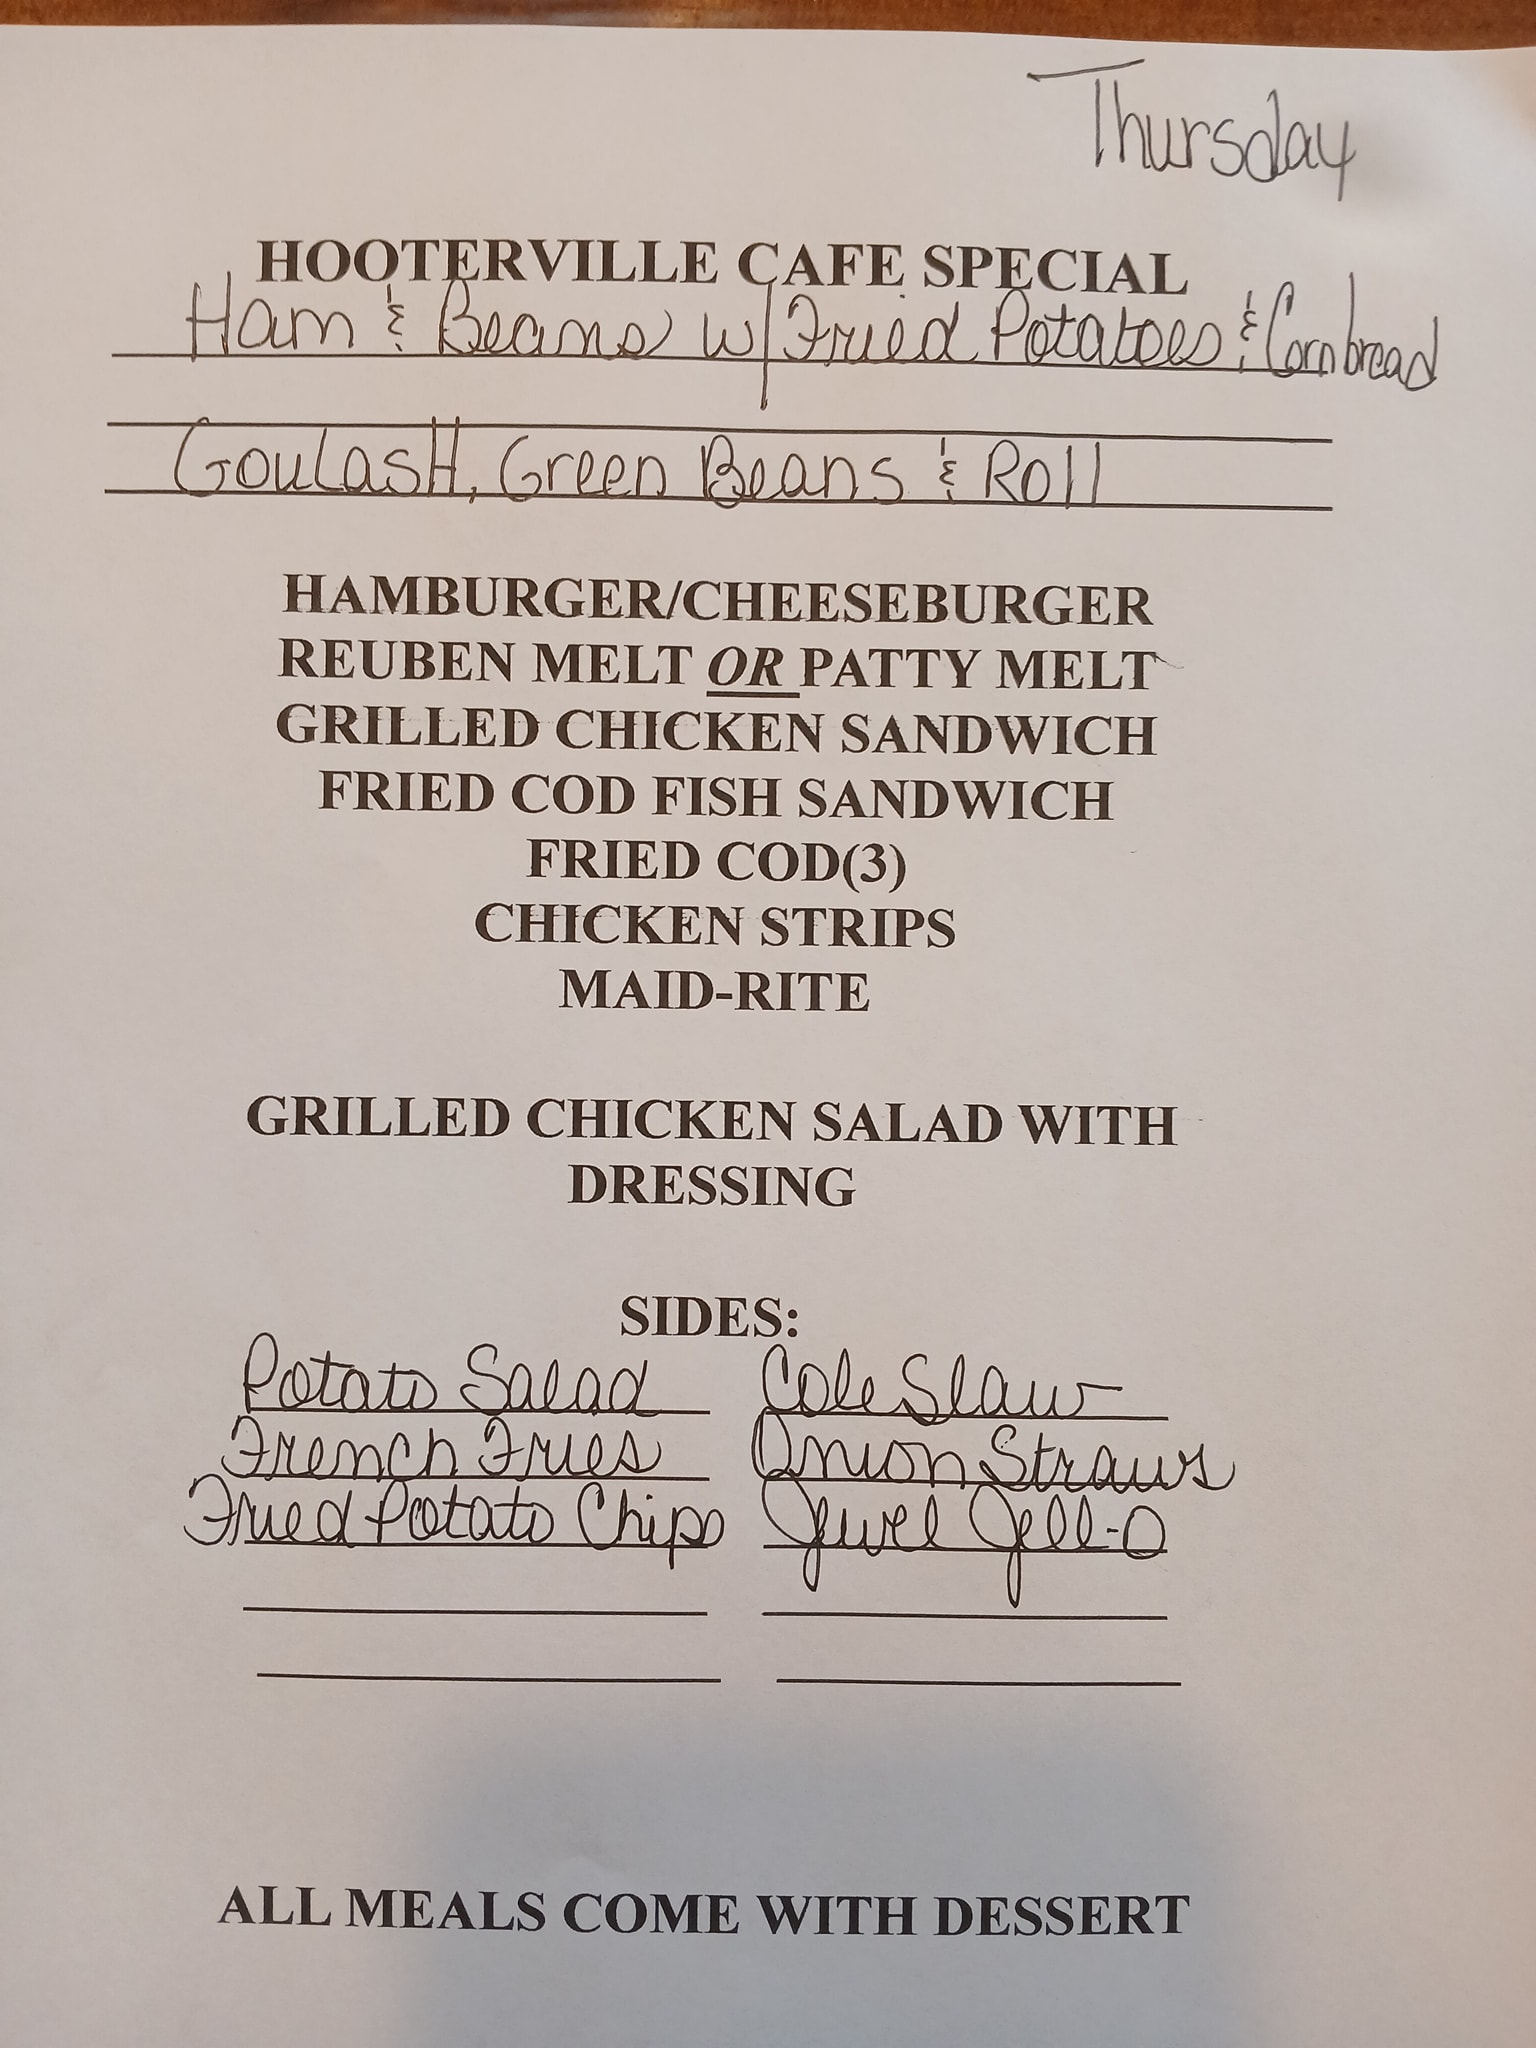 Thursday
HOOTERVILLE CAFE SPECIAL
Ham & Beans w/ Fried Potatoes & Cornbread
Goulash, Green Beans & Roll
HAMBURGER/CHEESEBURGER
REUBEN MELT OR PATTY MELT
GRILLED CHICKEN SANDWICH
FRIED COD FISH SANDWICH
FRIED COD(3)
CHICKEN STRIPS
MAID-RITE
GRILLED CHICKEN SALAD WITH
DRESSING
SIDES:
Potato Salad Cole Slaw
French Fries Onion Straws
Fried Potato Chips Jewel Jell-O
ALL MEALS COME WITH DESSERT